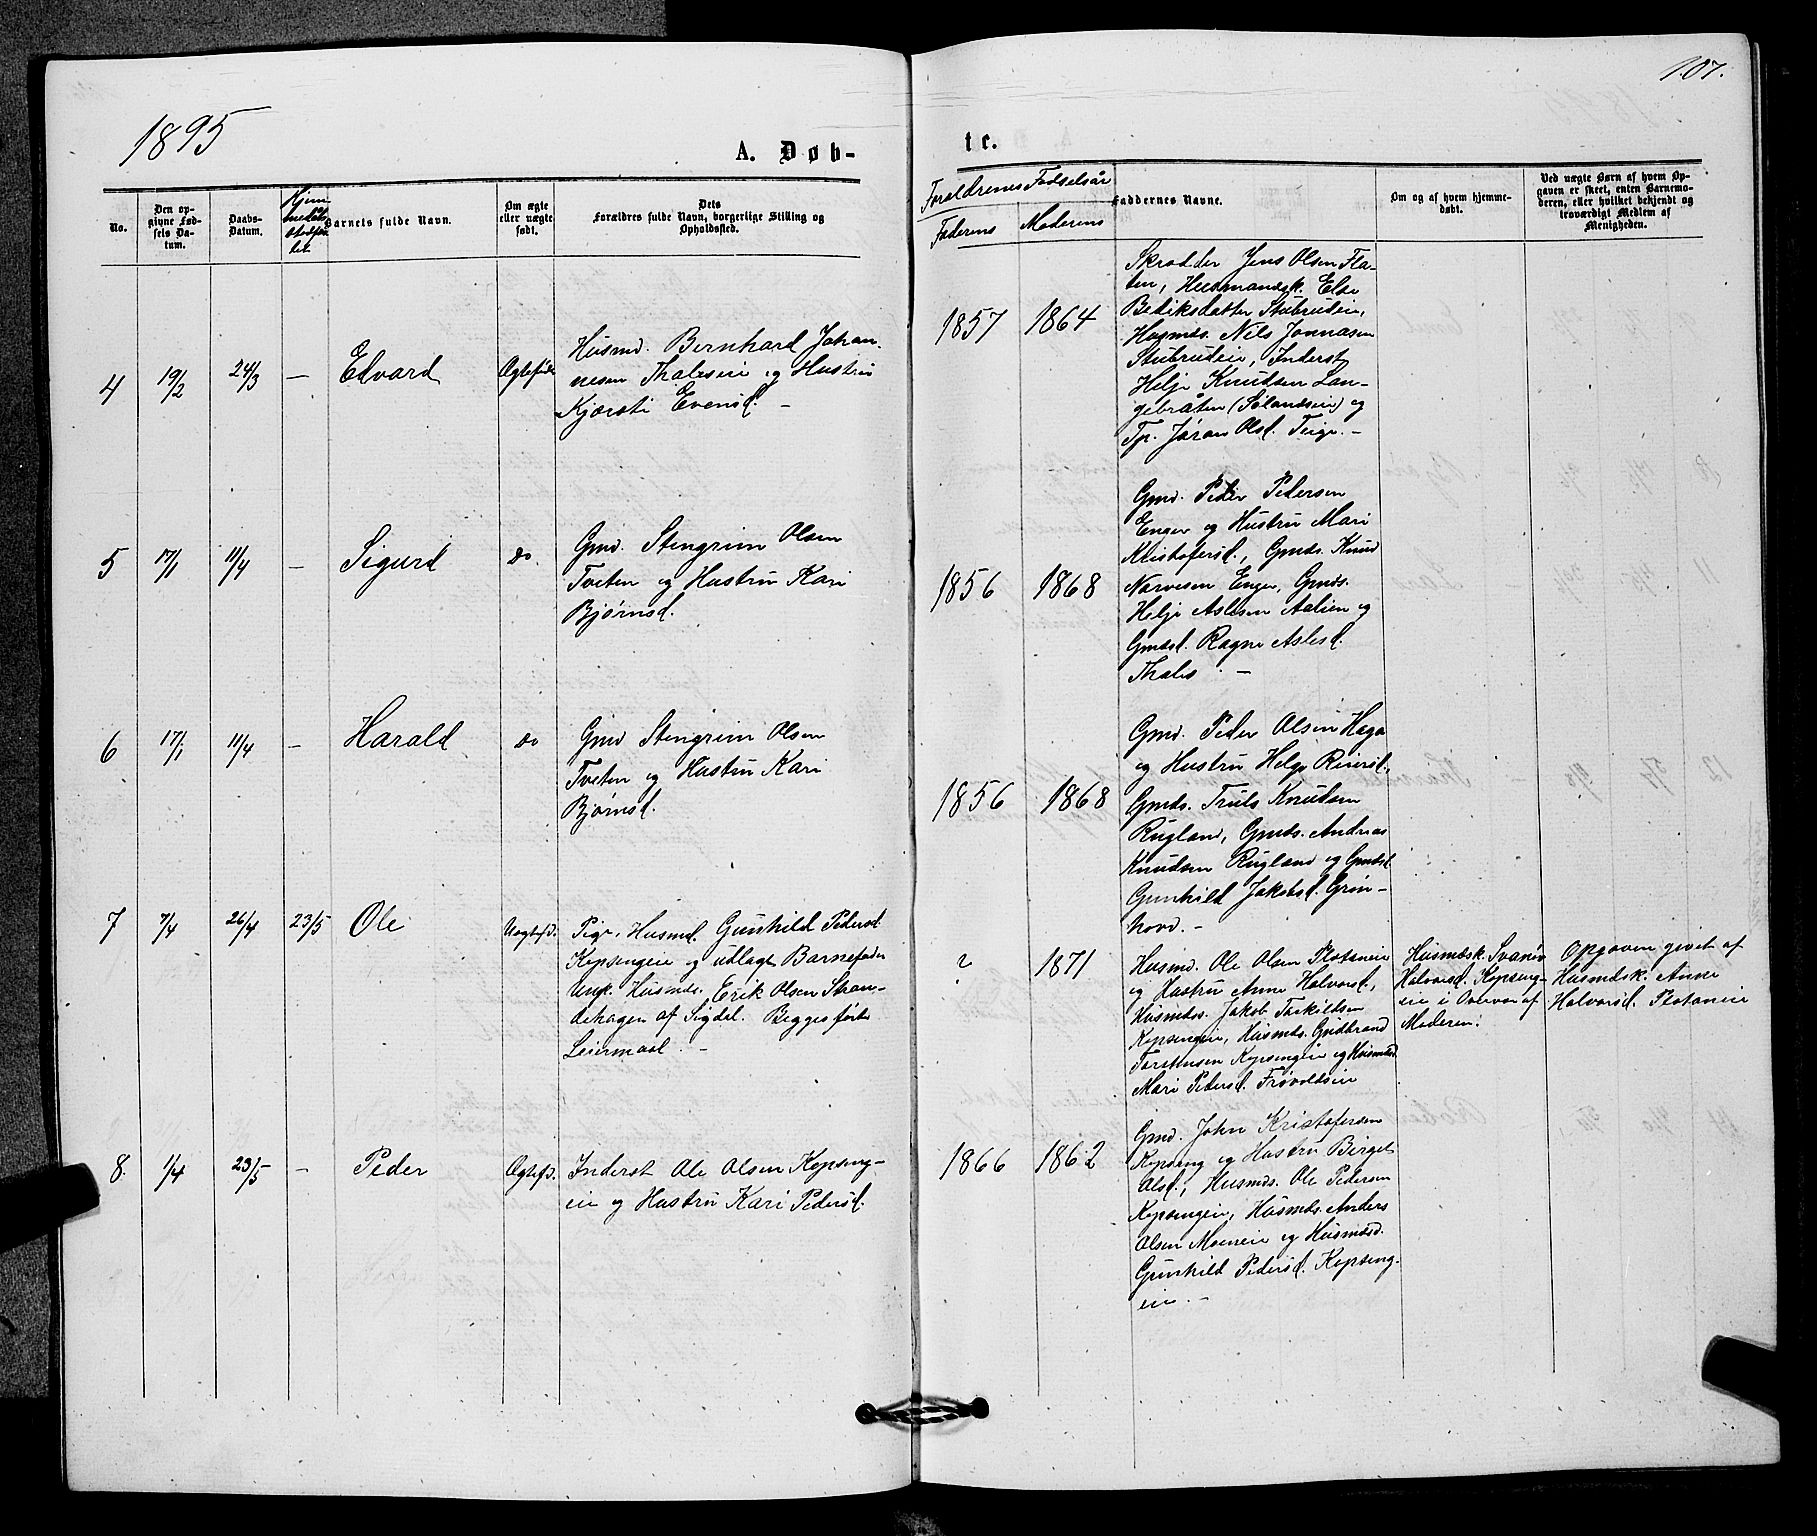 1895
107.
A. Døb-
te.
No.
Den op-
givne Fød-
sels Da-
tum.
Daabs-
Datum.
Hjem-
medøbt
Stadfæs-
tet
Barnets fulde Navn.
Om ægte
eller uægte
født.
Dets
Forældres fulde Navn, borgerlige Stilling og
Opholdssted.
Forældrenes Fødselsår
Faderens
Moderens
Faddernes Navne.
Om og af hvem hjemme-
døbt.
Ved uægte Børn af hvem Op-
gaven er skeet, enten Barnemo-
deren, eller hvilket bekjendt og
troværdigt Medlem af
Menigheden.
4
19/2
24/3
—
Edvard
Ægtefødt
Husmd. Bernhard Johan-
nesen Thaleseie og Hustru
Kjærsti Evensd. —
1857
1864
Skrædder Jens Olsen Fla-
ten, Husmandsk. Else
Bediksdatter Stubrudeie,
Husmds. Nils Jonnasen
Stubrudeie, Inderst
Helje Knudsen Lan-
gebråten (Sølandseie) og
Tp. Jøran Olsd. Teige. —
5
17/1
11/4
—
Sigurd
do.
Gmd. Stengrim Olsen
Tveten og Hustru Kari
Bjørnsd.
1856
1868
Gmd. Peder Pedersen
Enger og Hustru Mari
Kristofersd., Gmds. Knud
Narvesen Enger, Gmds.
Helje Aslesen Aalien og
Gmdsd. Ragne Aslesd.
Thales. —
6
17/1
11/4
—
Harald
do
Gmd Stengrim Olsen
Tveten og Hustru Kari
Bjørnsd.
1856
1868
Gmd. Peder Olsen Haga
og Hustru Helge Reiersd.,
Gmds. Truls Knudsen
Rugland, Gmds. Andreas
Knudsen Rugland og Gmdsd.
Gunhild Jakobsd. Grøn-
hovd. —
7
7/4
26/4
23/5
Ole
Uægtefd.
Pige, Husmd. Gunhild Pedersd.
Kopsengeie og udlagt Barnefader
Unk. Husmds. Erik Olsen Stran-
dehagen af Sigdal. Begges første
Leiermaal. —
?
1871
Husmd. Ole Olsen Plataneie
og Hustru Anne Halvorsd.,
Husmds. Jakob Torkildsen
Kopsengeie, Husmds. Gudbrand
Torstensen Kopsengeie og Husmdsd.
Mari Pedersd. Frøvoldseie
Husmdsk. Svanev
Halvorsd. Kopseng-
eie i Overvær af
Moderen.
Opgaven givet af
Husmdsk. Anne
Halvorsd. Plataneie
8
1/4
23/5
—
Peder
Ægtefd.
Inderst Ole Olsen Kopseng-
eie og Hustru Kari Pedersd.
1866
1862
Gmd. John Kristofersen
Kopseng og Hustru Birget
Olsd., Husmds. Ole Pedersen
Kopsengeie, Husmds. Anders
Olsen Moeneie og Husmdsd.
Gunhild Pedersd. Kopseng-
eie. —